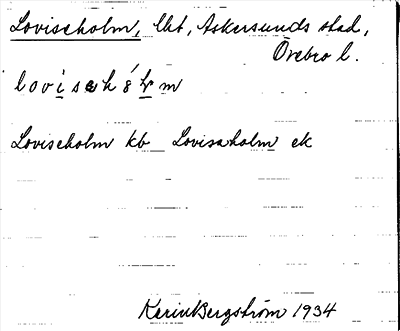 Loviseholm, lht, Askersunds stad,
Örebro l.
Loviseholm kb Lovisaholm ek
Karin Bergström 1934